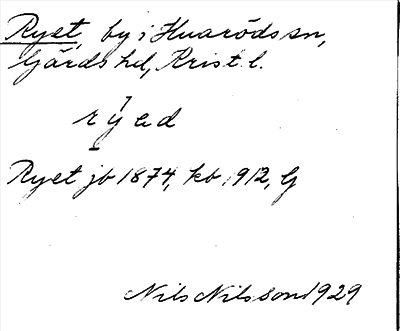 Ryet, by i Huaröds sn,
Gärds hd, Krist. l.
rýad
Ryet jb 1874, kb 1912, G
Nils Nilsson 1929